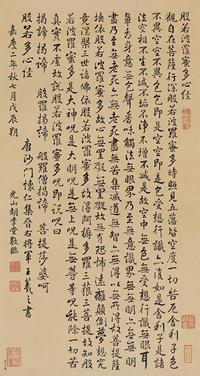 般若波羅蜜多心經
觀自在菩薩行深般若波羅蜜多時照見五蘊皆空度一切苦厄舍利子色
不異空空不異色色即是空空即是色受想行識亦復如是舍利子是諸
法空相不生不滅不垢不淨不增不減是故空中無色無受想行識無眼耳
鼻舌身意無色聲香味觸法無眼界乃至無意識界無無明亦無無明
盡乃至無老死亦無老死盡無苦集滅道無智亦無得以無所得故菩提薩
埵依般若波羅蜜多故心無罣礙無罣礙故無有恐怖遠離顛倒夢想究
竟涅槃三世諸佛依般若波羅蜜多故得阿耨多羅三藐三菩提故知般
若波羅蜜多是大神咒是大明咒是無上咒是無等等咒能除一切苦
真實不虛故說般若波羅蜜多咒即說咒曰
揭諦揭諦 般羅揭諦 般羅僧揭諦 菩提莎婆呵
般若多心經
嘉慶二年秋七月戊辰朔 唐沙門懷仁集晉右將軍王羲之書
光山胡季堂敬臨